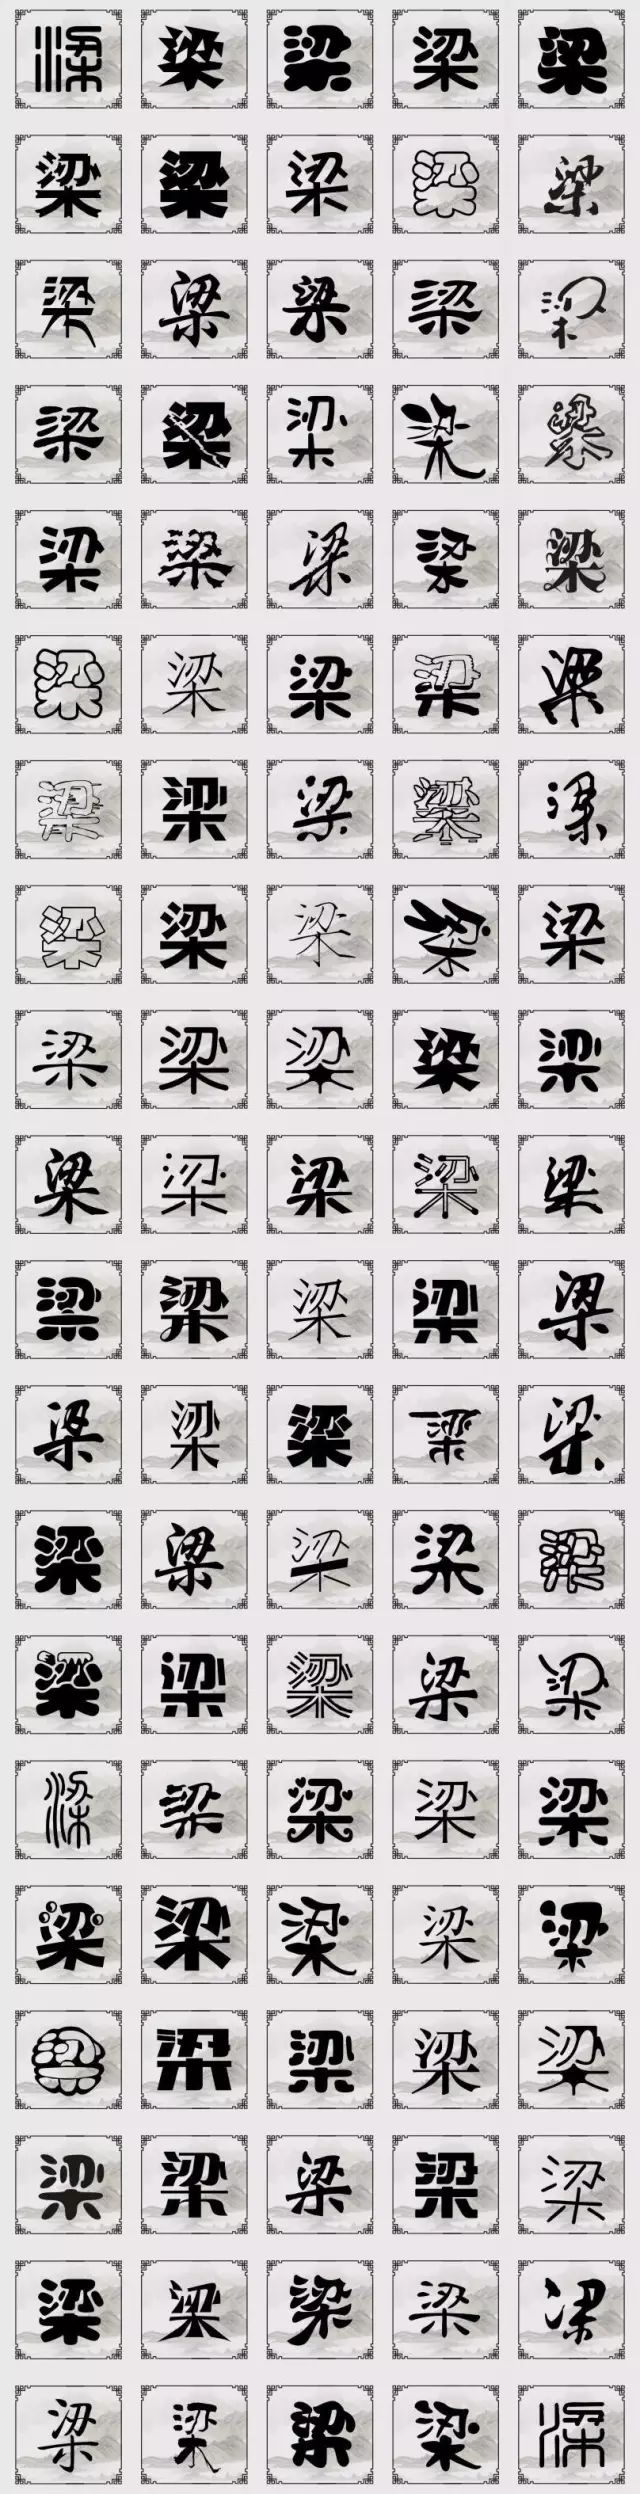 梁 梁 梁 梁 梁
梁 梁 梁 梁 梁
梁 梁 梁 梁 梁
梁 梁 梁 梁 梁
梁 梁 梁 梁 梁
梁 梁 梁 梁 梁
梁 梁 梁 梁 梁
梁 梁 梁 梁 梁
梁 梁 梁 梁 梁
梁 梁 梁 梁 梁
梁 梁 梁 梁 梁
梁 梁 梁 梁 梁
梁 梁 梁 梁 梁
梁 梁 梁 梁 梁
梁 梁 梁 梁 梁
梁 梁 梁 梁 梁
梁 梁 梁 梁 梁
梁 梁 梁 梁 梁
梁 梁 梁 梁 梁
梁 梁 梁 梁 梁